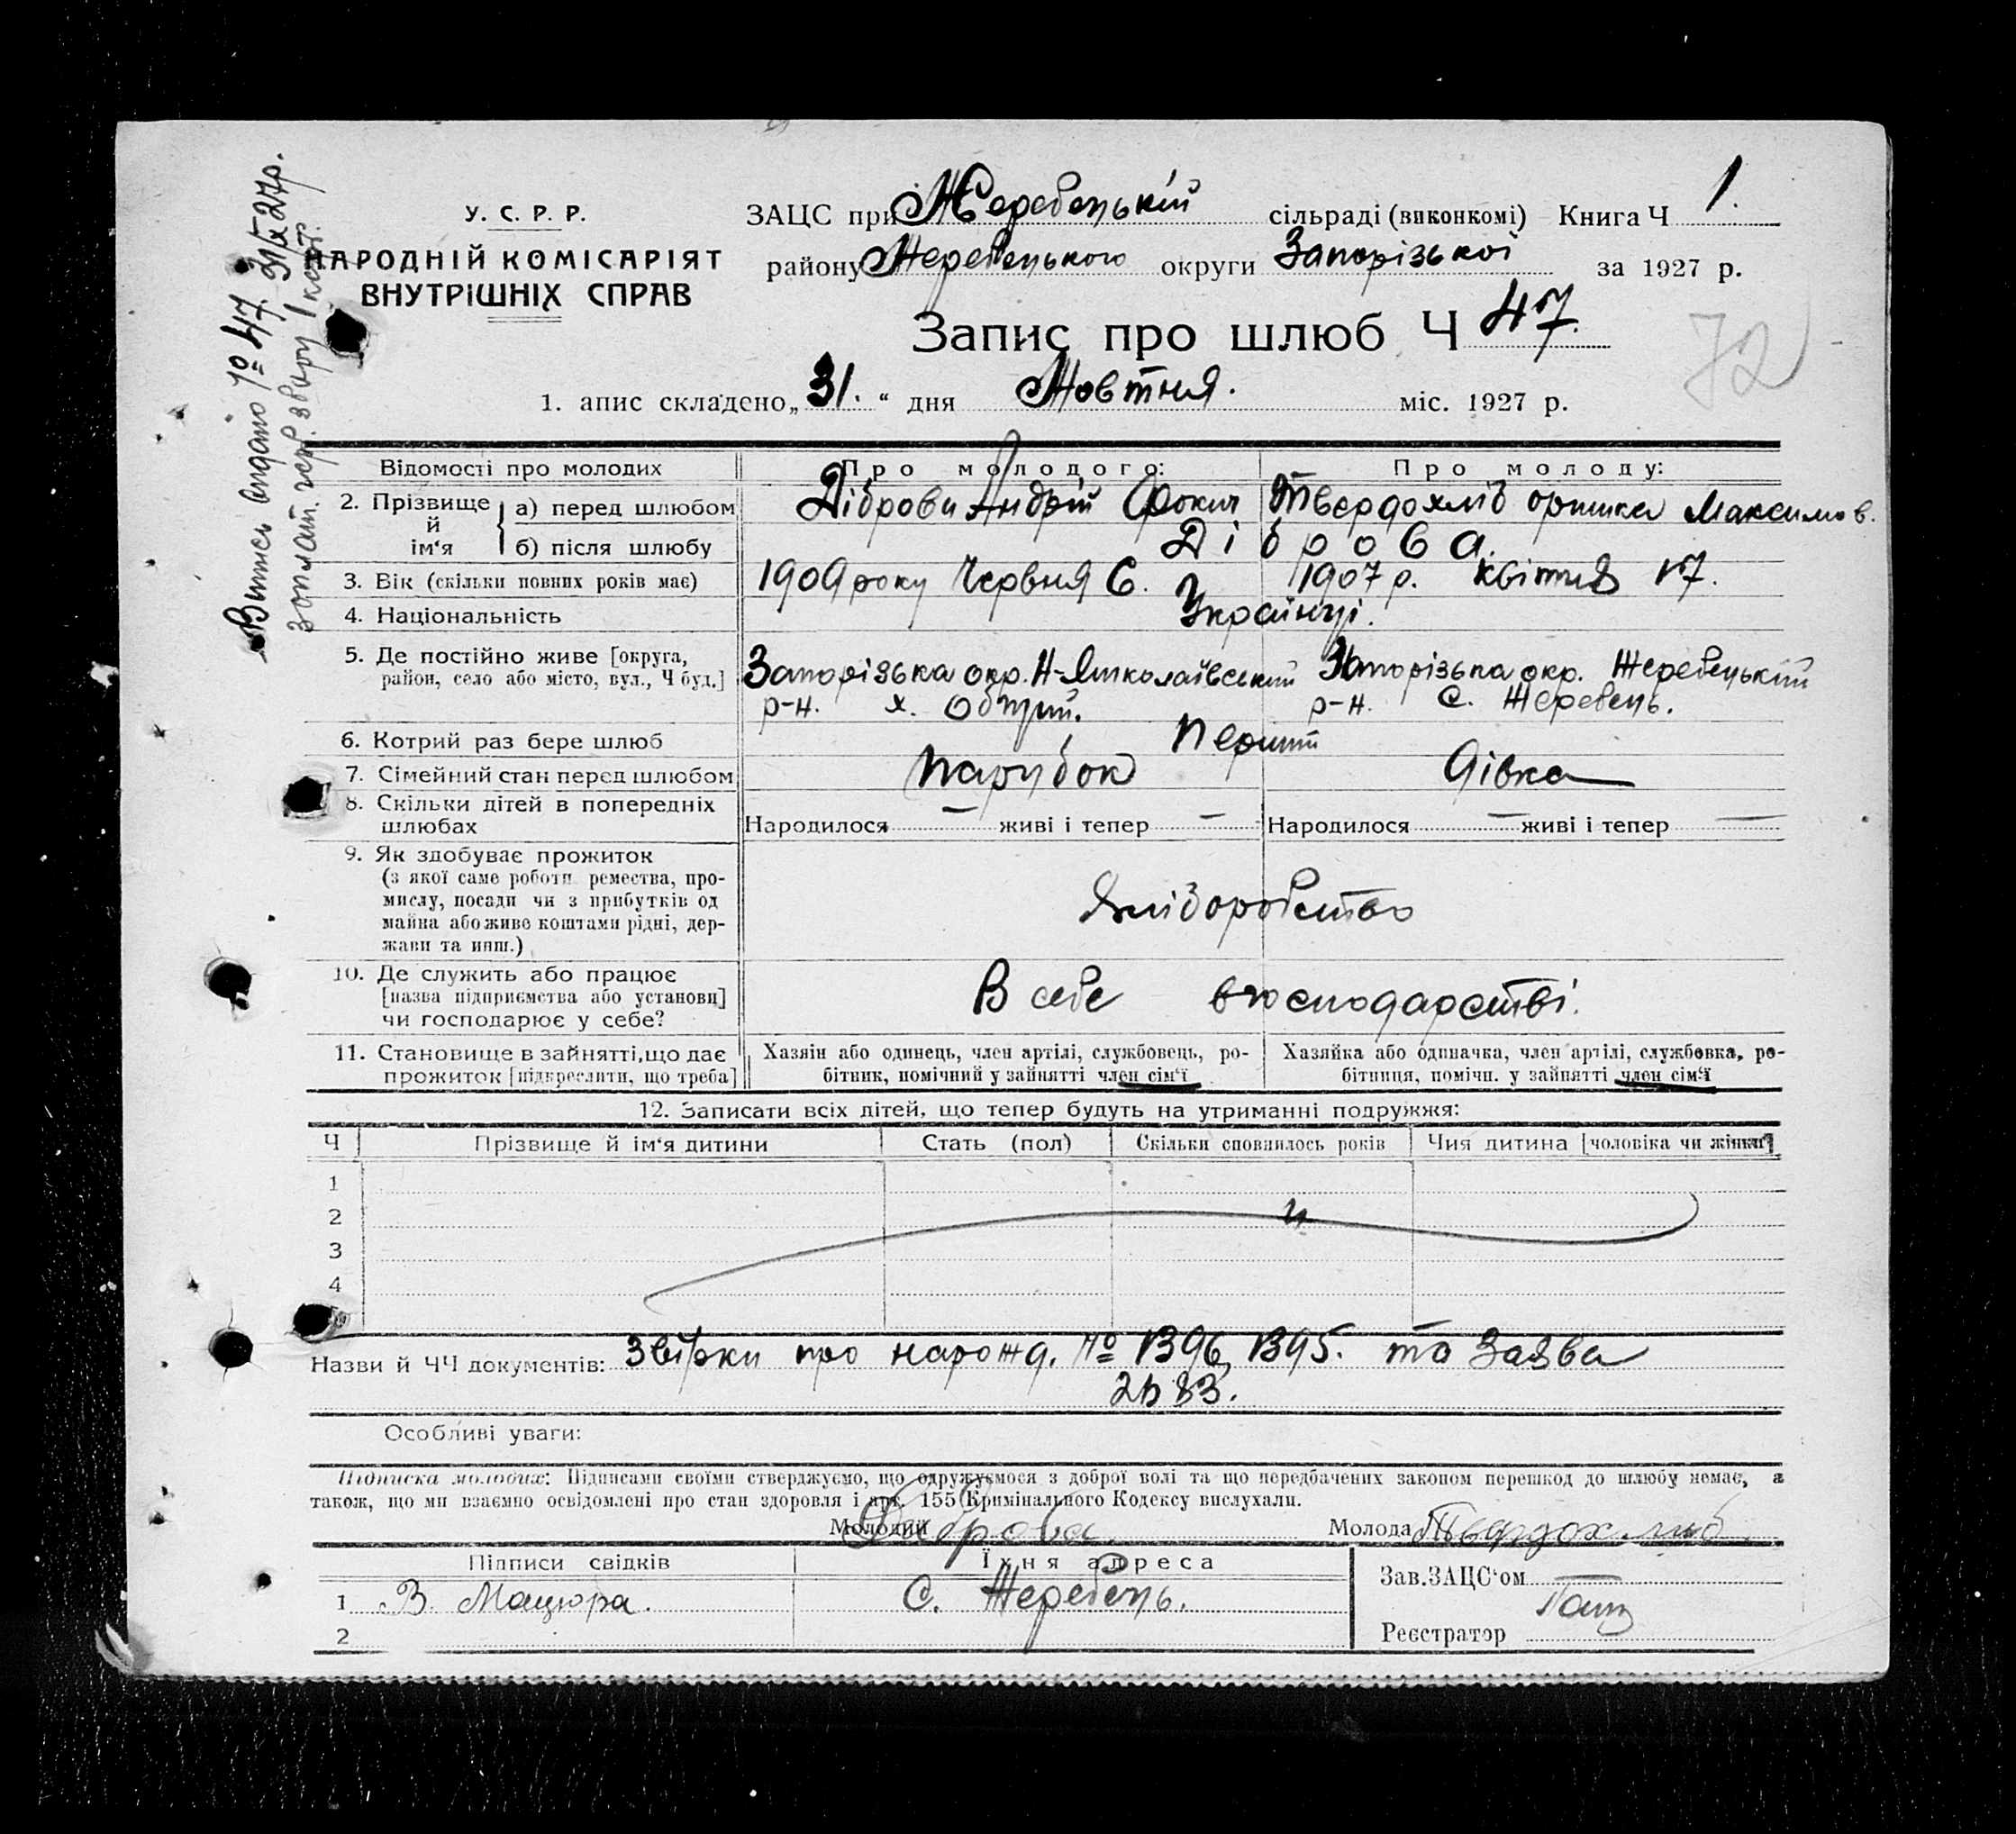 Випись видано № 47. 31/X 27р.
У. С. Р. Р.
НАРОДНІЙ КОМІСАРІЯТ
ВНУТРІШНІХ СПРАВ
ЗАЦС при Жеребецькій сільраді (виконкомі) Книга Ч 1.
району Жеребецького округи Запорізької за 1927 р.
Запис про шлюб Ч 47.
72
1. апис складено „31.“ дня Жовтня. міс. 1927 р.
Відомості про молодих Про молодого: Про молоду:
2. Прізвище й ім‘я { а) перед шлюбом Діброви Андрій Твердохліб оришка Максимов.
б) після шлюбу Діброва.
3. Вік (скільки повних років має) 1909 року Червня 6. 1907 р. квітня 17.
4. Національність Українці.
5. Де постійно живе [округа, Запорізька окр. Н-Миколаївський Запорізька окр. Жеребецький
район, село або місто, вул., Ч буд.] р-н. х. р-н. С. Жеребець.
6. Котрий раз бере шлюб Перший
7. Сімейний стан перед шлюбом Парубок Дівка
8. Скільки дітей в попередніх
шлюбах Народилося — живі і тепер — Народилося — живі і тепер —
9. Як здобуває прожиток
(з якої саме роботи ремества, про-
мислу, посади чи з прибутків од
майна або живе коштами рідні, дер-
жави та инш.)
Хліборобство
10. Де служить або працює
[назва підприємства або установи] В себе в господарстві.
чи господарює у себе?
11. Становище в зайнятті, що дає Хазяін або одинець, член артілі, службовець, ро- Хазяйка або одиначка, член артілі, службовка, ро-
прожиток [підкреслити, що треба] бітник, помічний у зайнятті член сім‘ї бітниця, помічн. у зайнятті член сім‘ї
12. Записати всіх дітей, що тепер будуть на утриманні подружжя:
Ч Прізвище й ім‘я дитини Стать (пол) Скільки сповнилось років Чия дитина [чоловіка чи жінки]
1
2
3
4
Назви й ЧЧ документів: Звірки про нарожд. № 1396, 1395. та Заява
2583.
Особливі уваги:
Підписка молодих: Підписами своїми стверджуємо, що одружуємося з доброї волі та що передбачених законом перешкод до шлюбу немає, а
також, що ми взаємно освідомлені про стан здоровля і арт. 155 Кримінального Кодексу вислухали.
Молодий Діброва. Молода Твердохлиб
Підписи свідків Їхня адреса Зав. ЗАЦС‘ом
1 В. Мацюра. С. Жеребець.
2 Реєстратор